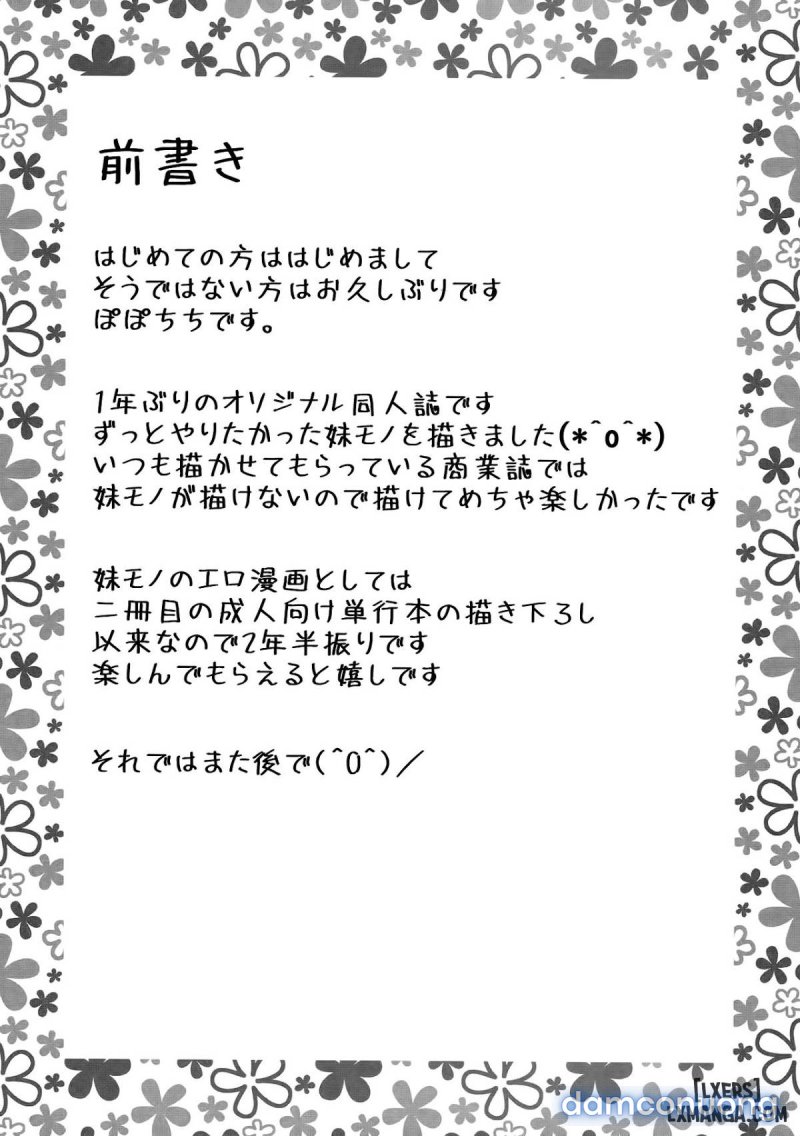 前書き
はじめての方ははじめまして
そうではない方はお久しぶりです
ぽぽちちです。
1年ぶりのオリジナル同人誌です
ずっとやりたかった妹モノを描きました(*^o^*)
いつも描かせてもらっている商業誌では
妹モノが描けないので描けてめちゃ楽しかったです
妹モノのエロ漫画としては
二冊目の成人向け単行本の描き下ろし
以来なので2年半振りです
楽しんでもらえると嬉しです
それではまた後で(^O^)／
[LXERS]
LXMANGA.COM